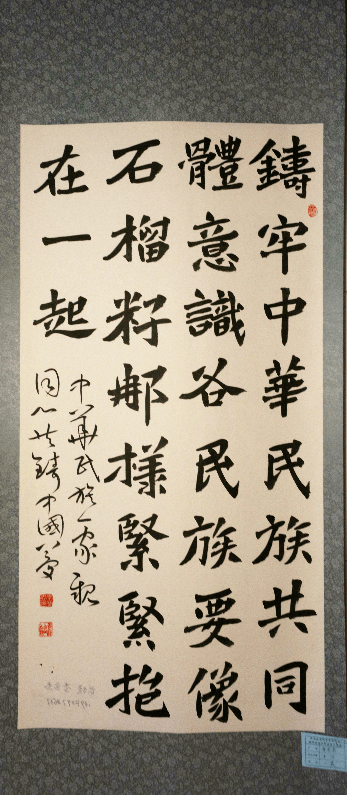 鑄牢中華民族共同
體意識各民族要像
石榴籽那樣緊緊抱
在一起
中華民族一家親
同心共鑄中國夢